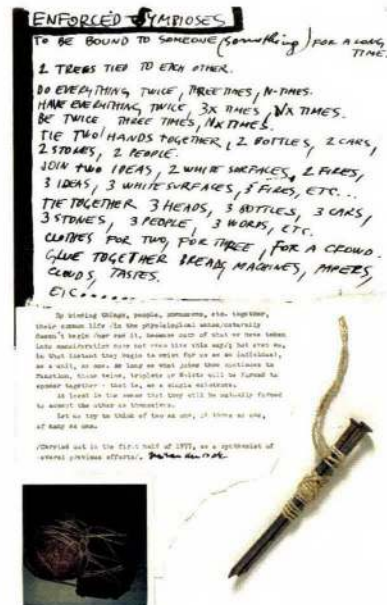 ENFORCED SYMBIOSES
TO BE BOUND TO SOMEONE (something) FOR A LONG
TIME.
2 TREES TIED TO EACH OTHER.
DO EVERYTHING TWICE, THREE TIMES, N-TIMES.
HAVE EVERYTHING TWICE, 3X TIMES, NX TIMES.
BE TWICE THREE TIMES, NX TIMES.
TIE TWO HANDS TOGETHER, 2 BOTTLES, 2 CARS,
2 STONES, 2 PEOPLE.
JOIN TWO IDEAS, 2 WHITE SURFACES, 2 FIRES,
3 IDEAS, 3 WHITE SURFACES, 3 FIRES, ETC...
TIE TOGETHER 3 HEADS, 3 BOTTLES, 3 CARS,
3 STONES, 3 PEOPLE, 3 WORDS, ETC.
CLOTHES FOR TWO, FOR THREE, FOR A CROWD.
GLUE TOGETHER BREADS, MACHINES, PAPERS,
CLOUDS, TASTES.
ETC......
By binding things, people, together,
their common life /in the physiological sense/naturally
doesn't begin
in that instant they begin to exist for us as an individual,
as a unit, as one. As long as what joins them continues to
function, these twins, triplets or N-lets will be forced to
appear together - that is, as a single substance.
At least in the sense that they will be mutually forced
to accept the other as themselves.
Let us try to think of two as one, of three as one,
of many as one.
/Carried out in the first half of 1977, as a synthesist of
several previous efforts/.